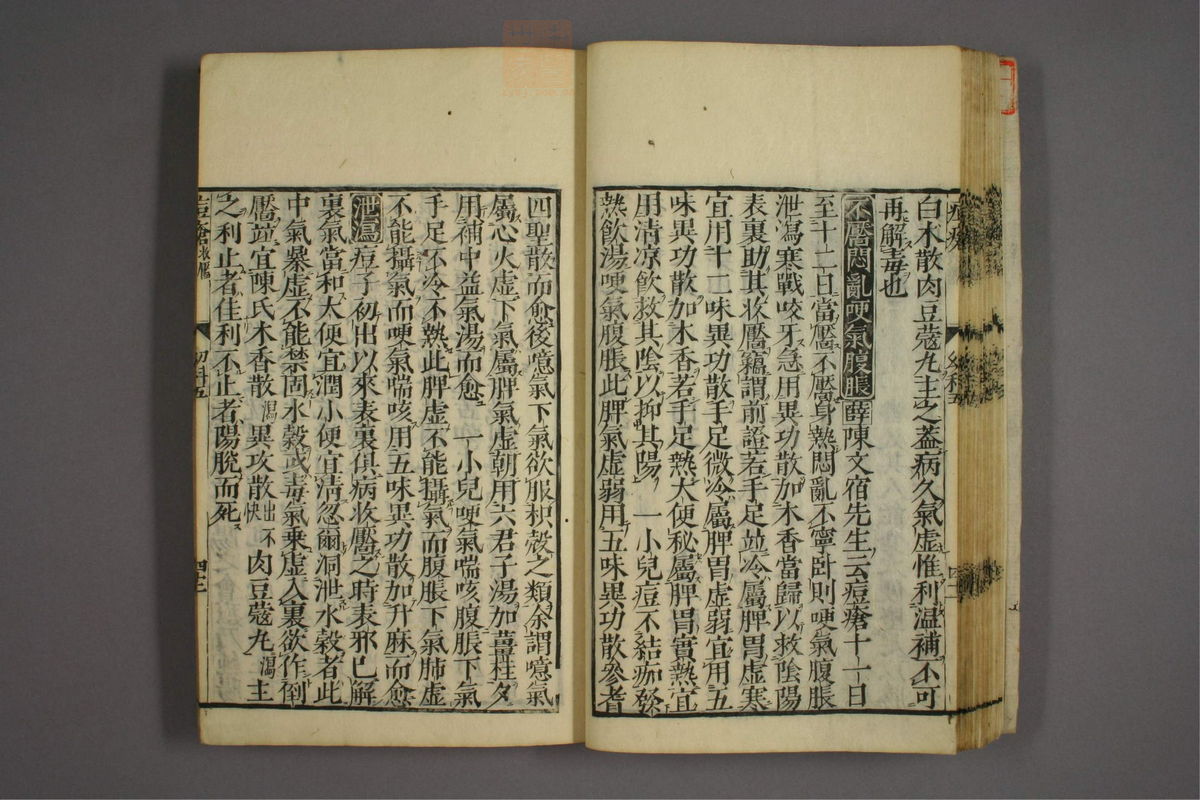 白木散肉豆蔻丸主之蓋病久氣虛惟利温補不可
再解毒也
不靨悶亂哽氣腹脹 薛陳文宿先生云痘瘡十一日
至十二日當靨不靨身熱悶亂不寧臥則哽氣腹脹
泄瀉寒戰咬牙急用異功散加木香當歸以救陰陽
表裏助其收靨竊謂前證若手足竝冷屬脾胃虛寒
宜用十二味異功散手足微冷屬脾胃虛弱宜用五
味異功散加木香若手足熱大便秘屬脾胃實熱宜
用清凉飲救其陰以抑其陽 一小兒痘不結痂發
熱飲湯哽氣腹脹此脾氣虛弱用五味異功散參耆
四聖散而愈後噫氣下氣欲服枳殻之類余謂噫氣
屬心火虛下氣屬脾氣虛朝用六君子湯加薑桂夕
用補中益氣湯而愈 一小兒哽氣喘咳腹脹下氣
手足不冷不熱此脾虛不能攝氣而腹脹下氣肺虛
不能攝氣而哽氣喘咳用五味異功散加升麻而愈
泄瀉 痘子初出以來表裏俱病收靨之時表邪已解
裏氣當和大便宜潤小便宜清忽爾洞泄水穀者此
中氣暴虛不能禁固水穀或毒氣乘虛入裏欲作倒
靨竝宜陳氏木香散瀉異攻散出不快肉豆蔻丸瀉主
之利止者佳利不止者陽脱而死
痘瘡收靨
幼科五
四十二